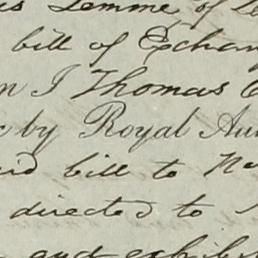 Lemme of
bill of Exchan
I Thomas
by Royal Au
bill to
directed to
and exhib